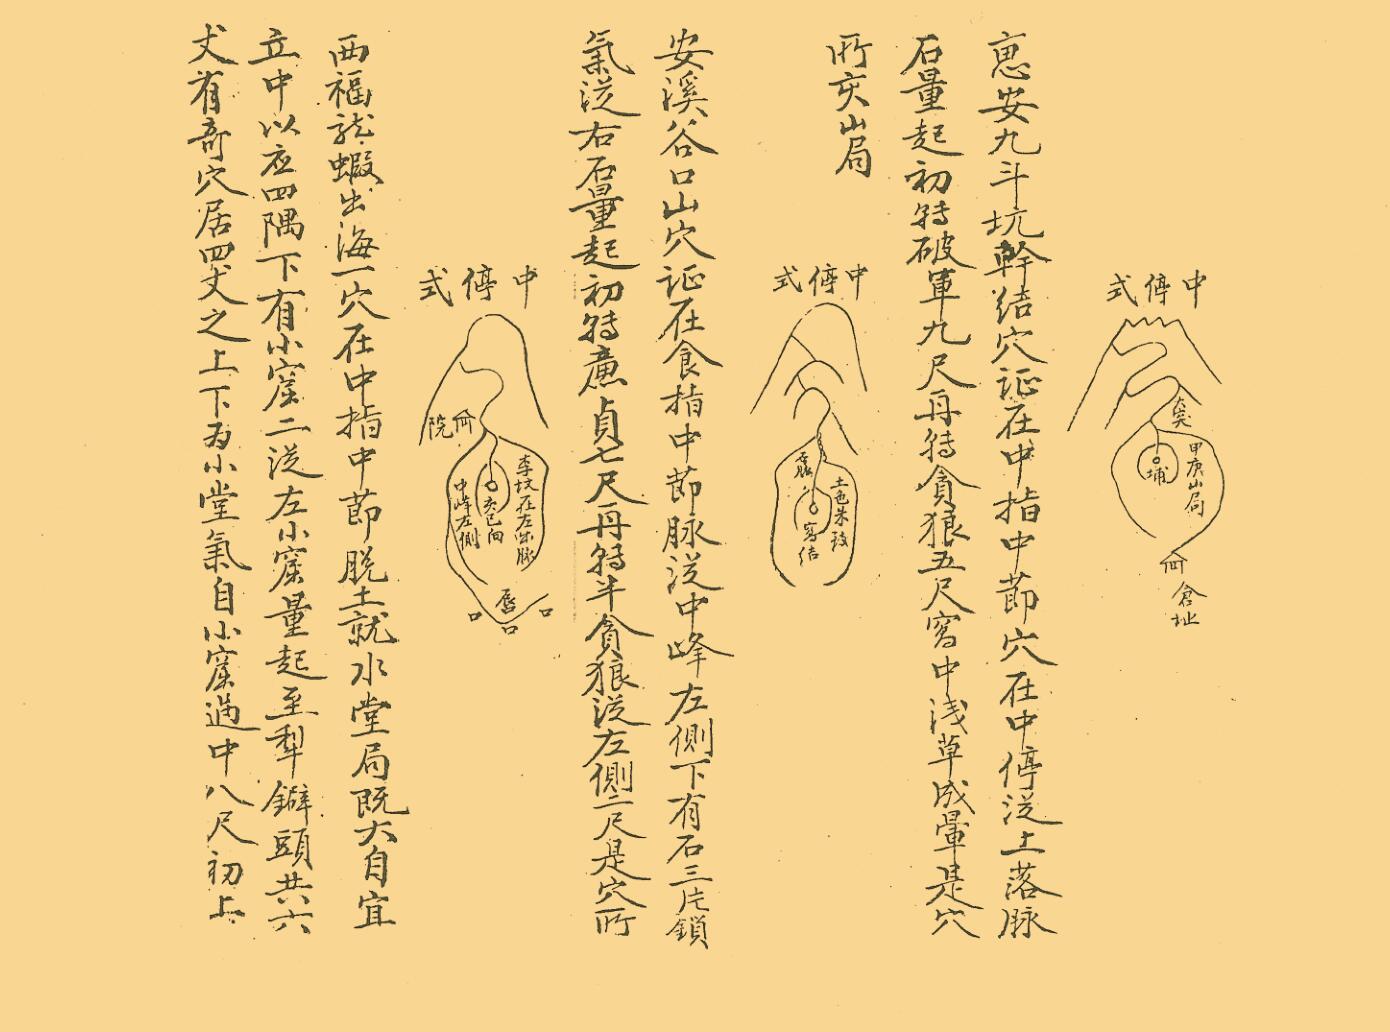 中停式
甲庚山局
埔
倉址
惠安九斗坑幹结穴証在中指中莭穴在中停送土落脉
石量起初轉破軍九尺再轉貪狼五尺窩中浅草成暈是穴
所亥山局
中停式
土色朱
窩结
安溪谷口山穴証在食指中莭脉送中峰左側下有石三片鎖
氣送右石量起初轉亷貞七尺再轉半貪狼送左側二尺是穴所
中停式
李坟在左出脉
亥已向
中峰左側
院
唇
西福龙蝦出海一穴在中指中莭脱土就水堂局既大自宜
立中以应四隅下有小窟二送左小窟量起至犁鐴頭共六
丈有奇穴居四丈之上下為小堂氣自小窟過中八尺初上